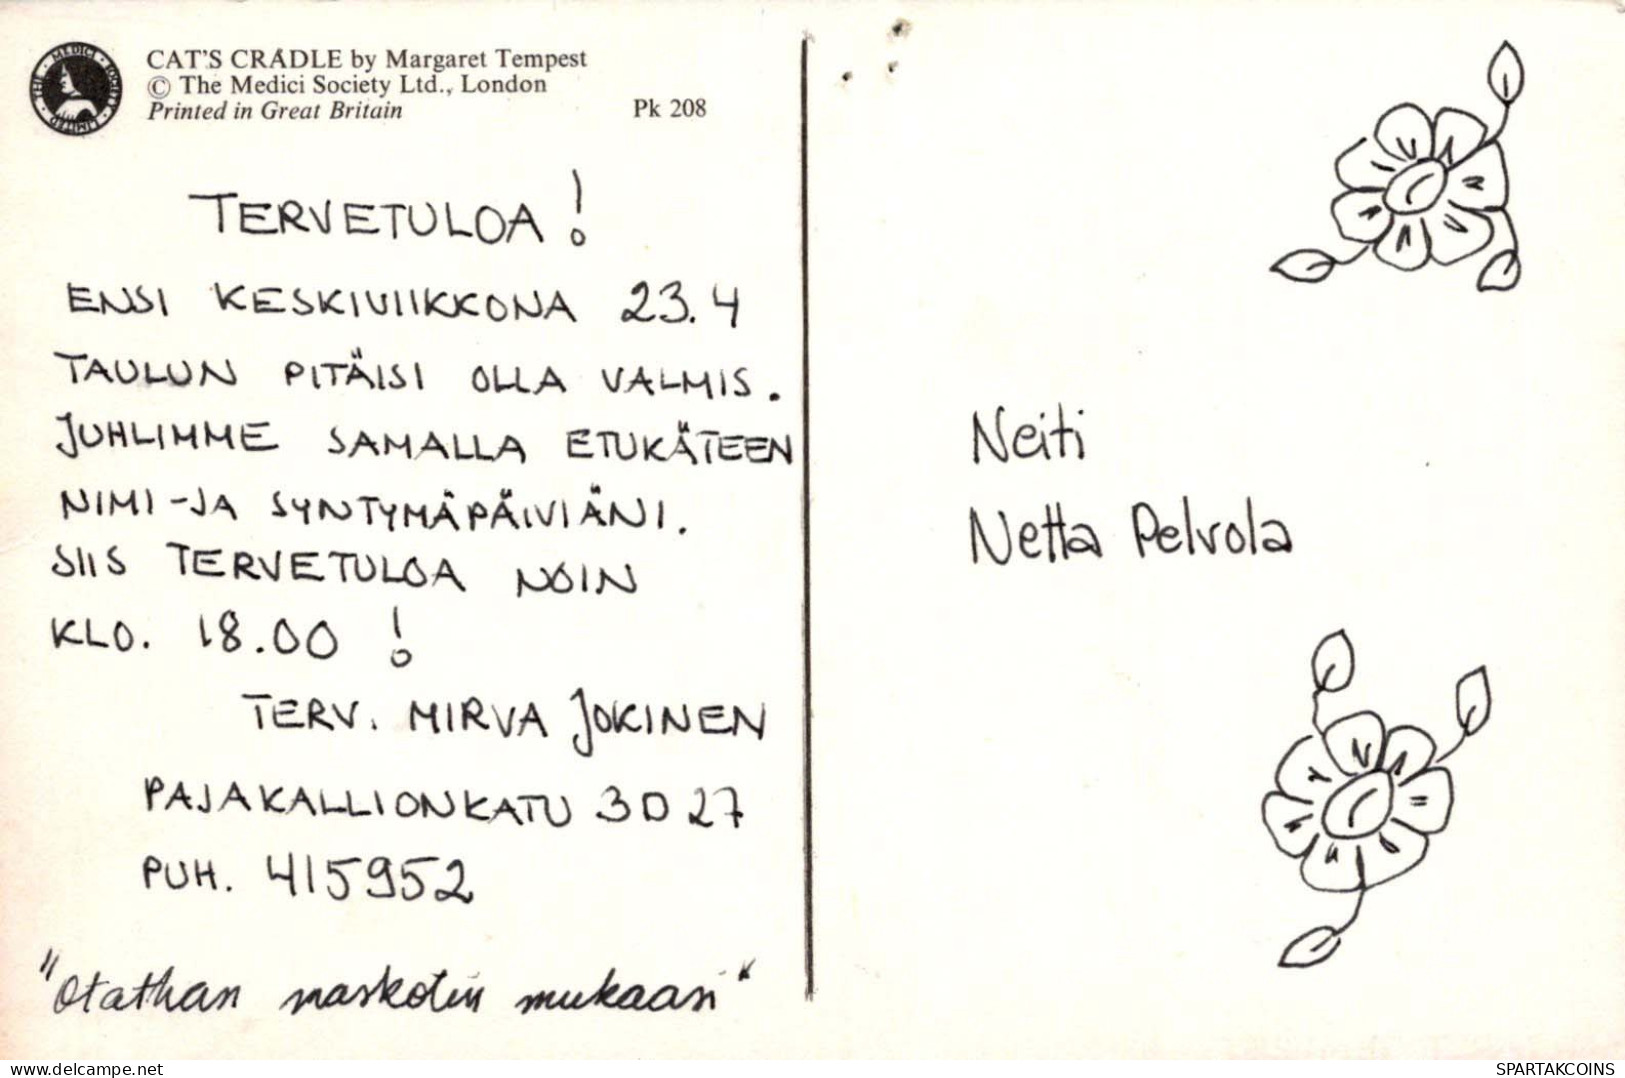 THE MEDICI SOCIETY LIMITED
CAT'S CRADLE by Margaret Tempest
© The Medici Society Ltd., London
Printed in Great Britain
Pk 208
TERVETULOA!
ENSI KESKIVIIKKONA 23.4
TAULUN PITÄISI OLLA VALMIS.
JUHLIMME SAMALLA ETUKÄTEEN
NIMI-JA SYNTYMÄPÄIVIÄNI.
SIIS TERVETULOA NOIN
KLO. 18.00!
TERV. MIRVA JOKINEN
PAJAKALLIONKATU 3D27
PUH. 415952
"Otathan maskotin mukaasi"
Neiti
Netta Pelvola
https://www.delcampe.net
SPARTAKCOINS